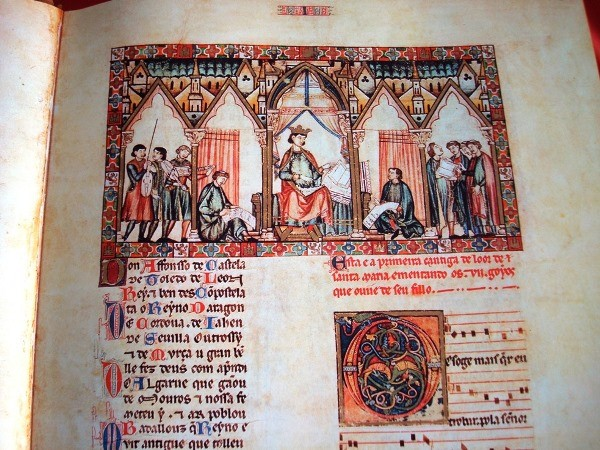 Don Affonsso de Castela
de Toledo de Leon
Rey ⁊ ben des Cõpostela
ta o Reyno Daragon
De Cordoua de Jahen
De Seuilla outrossy
⁊ de Murça u gran bẽ
lle fez deus com aprẽdi
do Algarue que gãou
de Mouros ⁊ nossa fe
meteu y. ⁊ ar poblou
Badallouz q̃ Reyno e
Muit antigue que tolleu
Esta e a primeira cantiga de loor de s̃
santa maria ementando os .vii. goyos
que ouue de seu fillo.
Des oge mais qr̃ eu
trobar. pola sennor